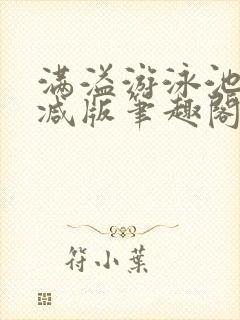 满溢游泳池
减版笔趣阁
符小叶